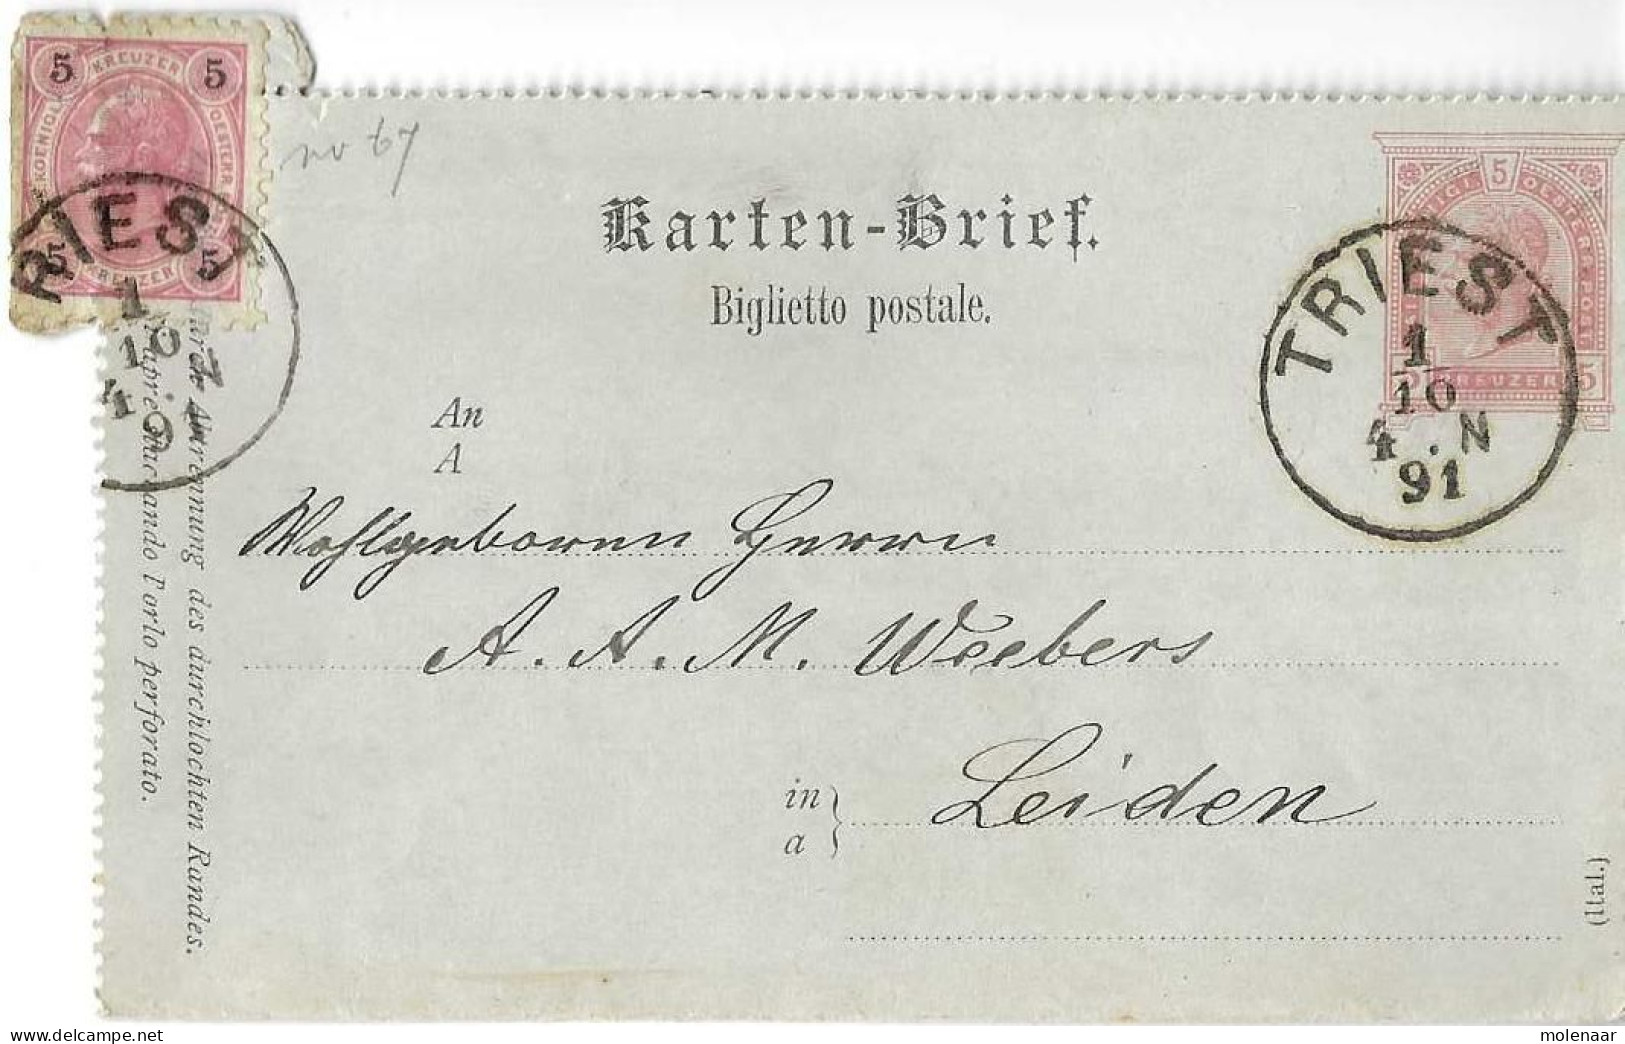 5 KREUZER 5
KOENIGL. OESTERR.
5 KREUZER 5
RIEST
1
10
4
no 67
Karten-Brief.
Biglietto postale.
5
OESTERR. POST
5 KREUZER 5
TRIEST
1
10
4.N
91
An
A
Wohlgeboren Herrn
A. A. M. Weebers
in
a
Leiden
Abtrennung des durchlochten Randes.
apre staccando l'orlo perforato.
(Ital.)
molenaar